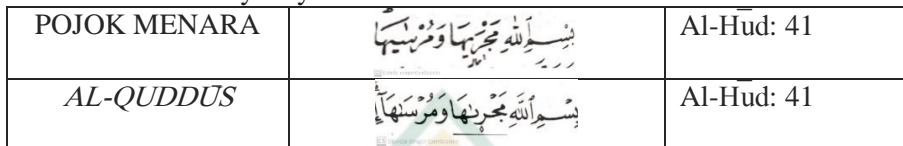 POJOK MENARA بِسْمِ اللّٰهِ مَجْرٰىهَا وَمُرْسٰىهَا Al-Hūd: 41
AL-QUDDŪS بِسْمِ ٱللَّهِ مَجْر۪ىٰهَا وَمُرْسَىٰهَآ Al-Hūd: 41